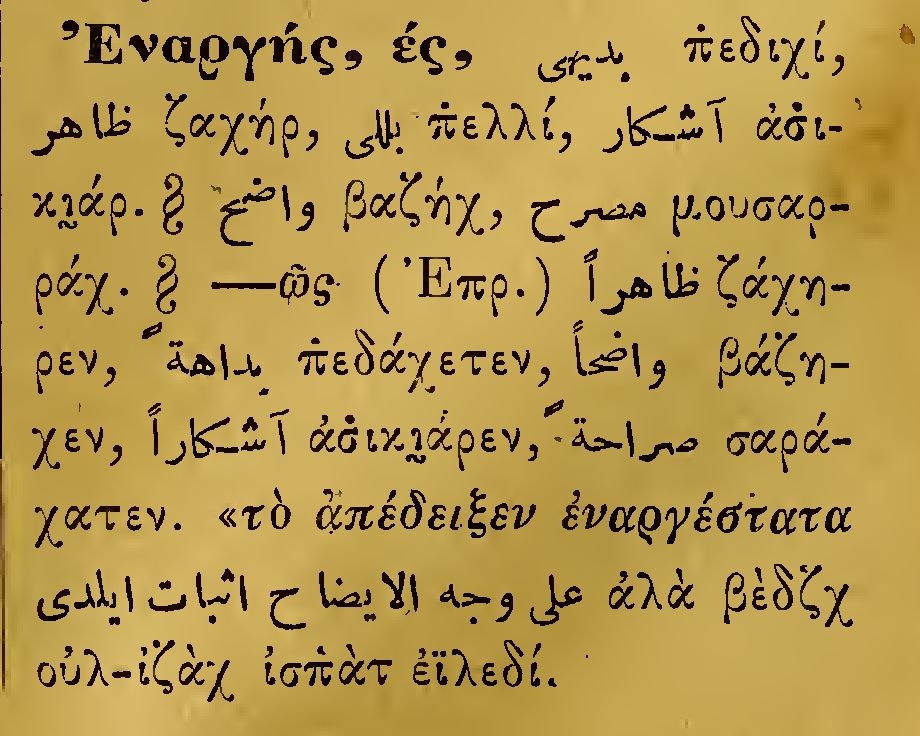 Ἐναργής, ές, بدیهی π̇εδιχί,
ظاهر ζαχήρ, بللی π̇ελλί, آشکار ἀσ̇ι-
κι̰άρ. § واضح βαζήχ, مصرح μουσαρ-
ράχ. § —ῶς (Ἐπρ.) ظاهراً ζάχη-
ρεν, بداهةً π̇εδάχετεν, واضحاً βάζη-
χεν, آشکاراً ἀσ̇ικι̰άρεν, صراحةً σαρά-
χατεν. «τὸ ἀπέδειξεν ἐναργέστατα
علی وجه الایضاح اثبات ایلدی ἀλὰ βὲδζχ
οὐλ-ἰζὰχ ἰσπ̇ὰτ ἐϊλεδί.